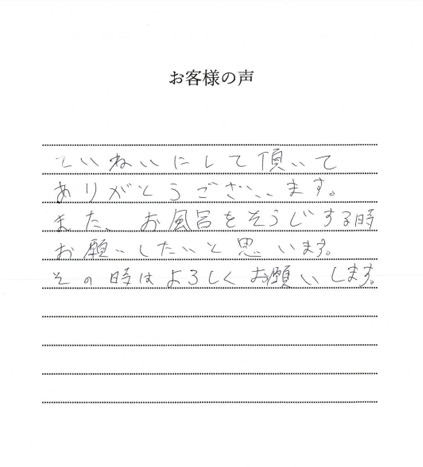 お客様の声
ていねいにして頂いて
ありがとうございます。
また、お風呂をそうじする時
お願いしたいと思います。
その時はよろしくお願いします。